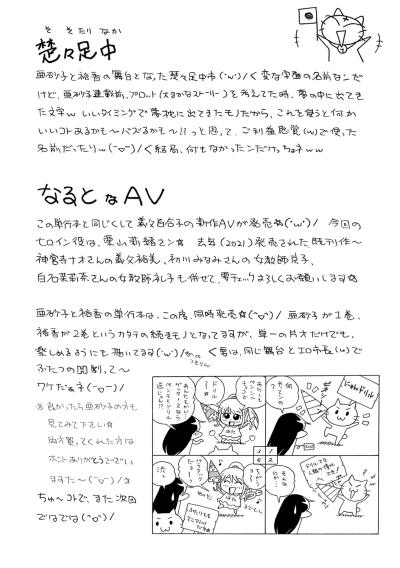 そ そ たり なか
楚々足中
亜砂子と裕香の舞台となった楚々足中市(･'ω')/く変な字面の名前なンだ
けど、亜砂子連載前、プロット(大まかなストーリー)を考えてた時、夢の中に出てき
た文字w いいタイミングで夢枕に出てきたモノだから、これを使うと何か
いいコトあるかも〜バズるかも〜!?っと思って、ご利益感覚(w)で使った
名前だったりw(ｰ▽ｰ)/く結局、何もなかったンだけっちょネww
なるとなAV
この単行本と同じくして義父百合子の新作AVが発売☆(･'ω')/ 今回の
ヒロイン役は、栗山莉緒さン☆ 去年(2021)発売された既刊作〜
神宮寺ナオさンの義父裕美、初川みなみさンの女教師晃子、
白石茉莉奈さンの女教師礼子も併せて、要チェックよろしくお願いします☆
亜砂子と裕香の単行本は、この度、同時発売☆(ｰ▽ｰ)/ 亜砂子が1巻、
裕香が2巻というカタチの続きモノとなってますが、単一の片方だけでも、
楽しめるようにも描いてます('ω')/ かの つまりん く男は、同じ舞台とエロ市長(w)で
ふたつの悶劇って〜
ワケだぁネ(ｰ▽ｰ)/
※良かったら亜砂子の方も
見てみて下さい☆
両方買ってくれた方は
ホントありがとうでございい
ますた〜(ｰ▽ｰ)/☆
ちゅ〜コトで、また次回
でわでわ(ｰ▽ｰ)/
にゅんドリル!
何
ドリル
〜!
はた
1/2
3/4